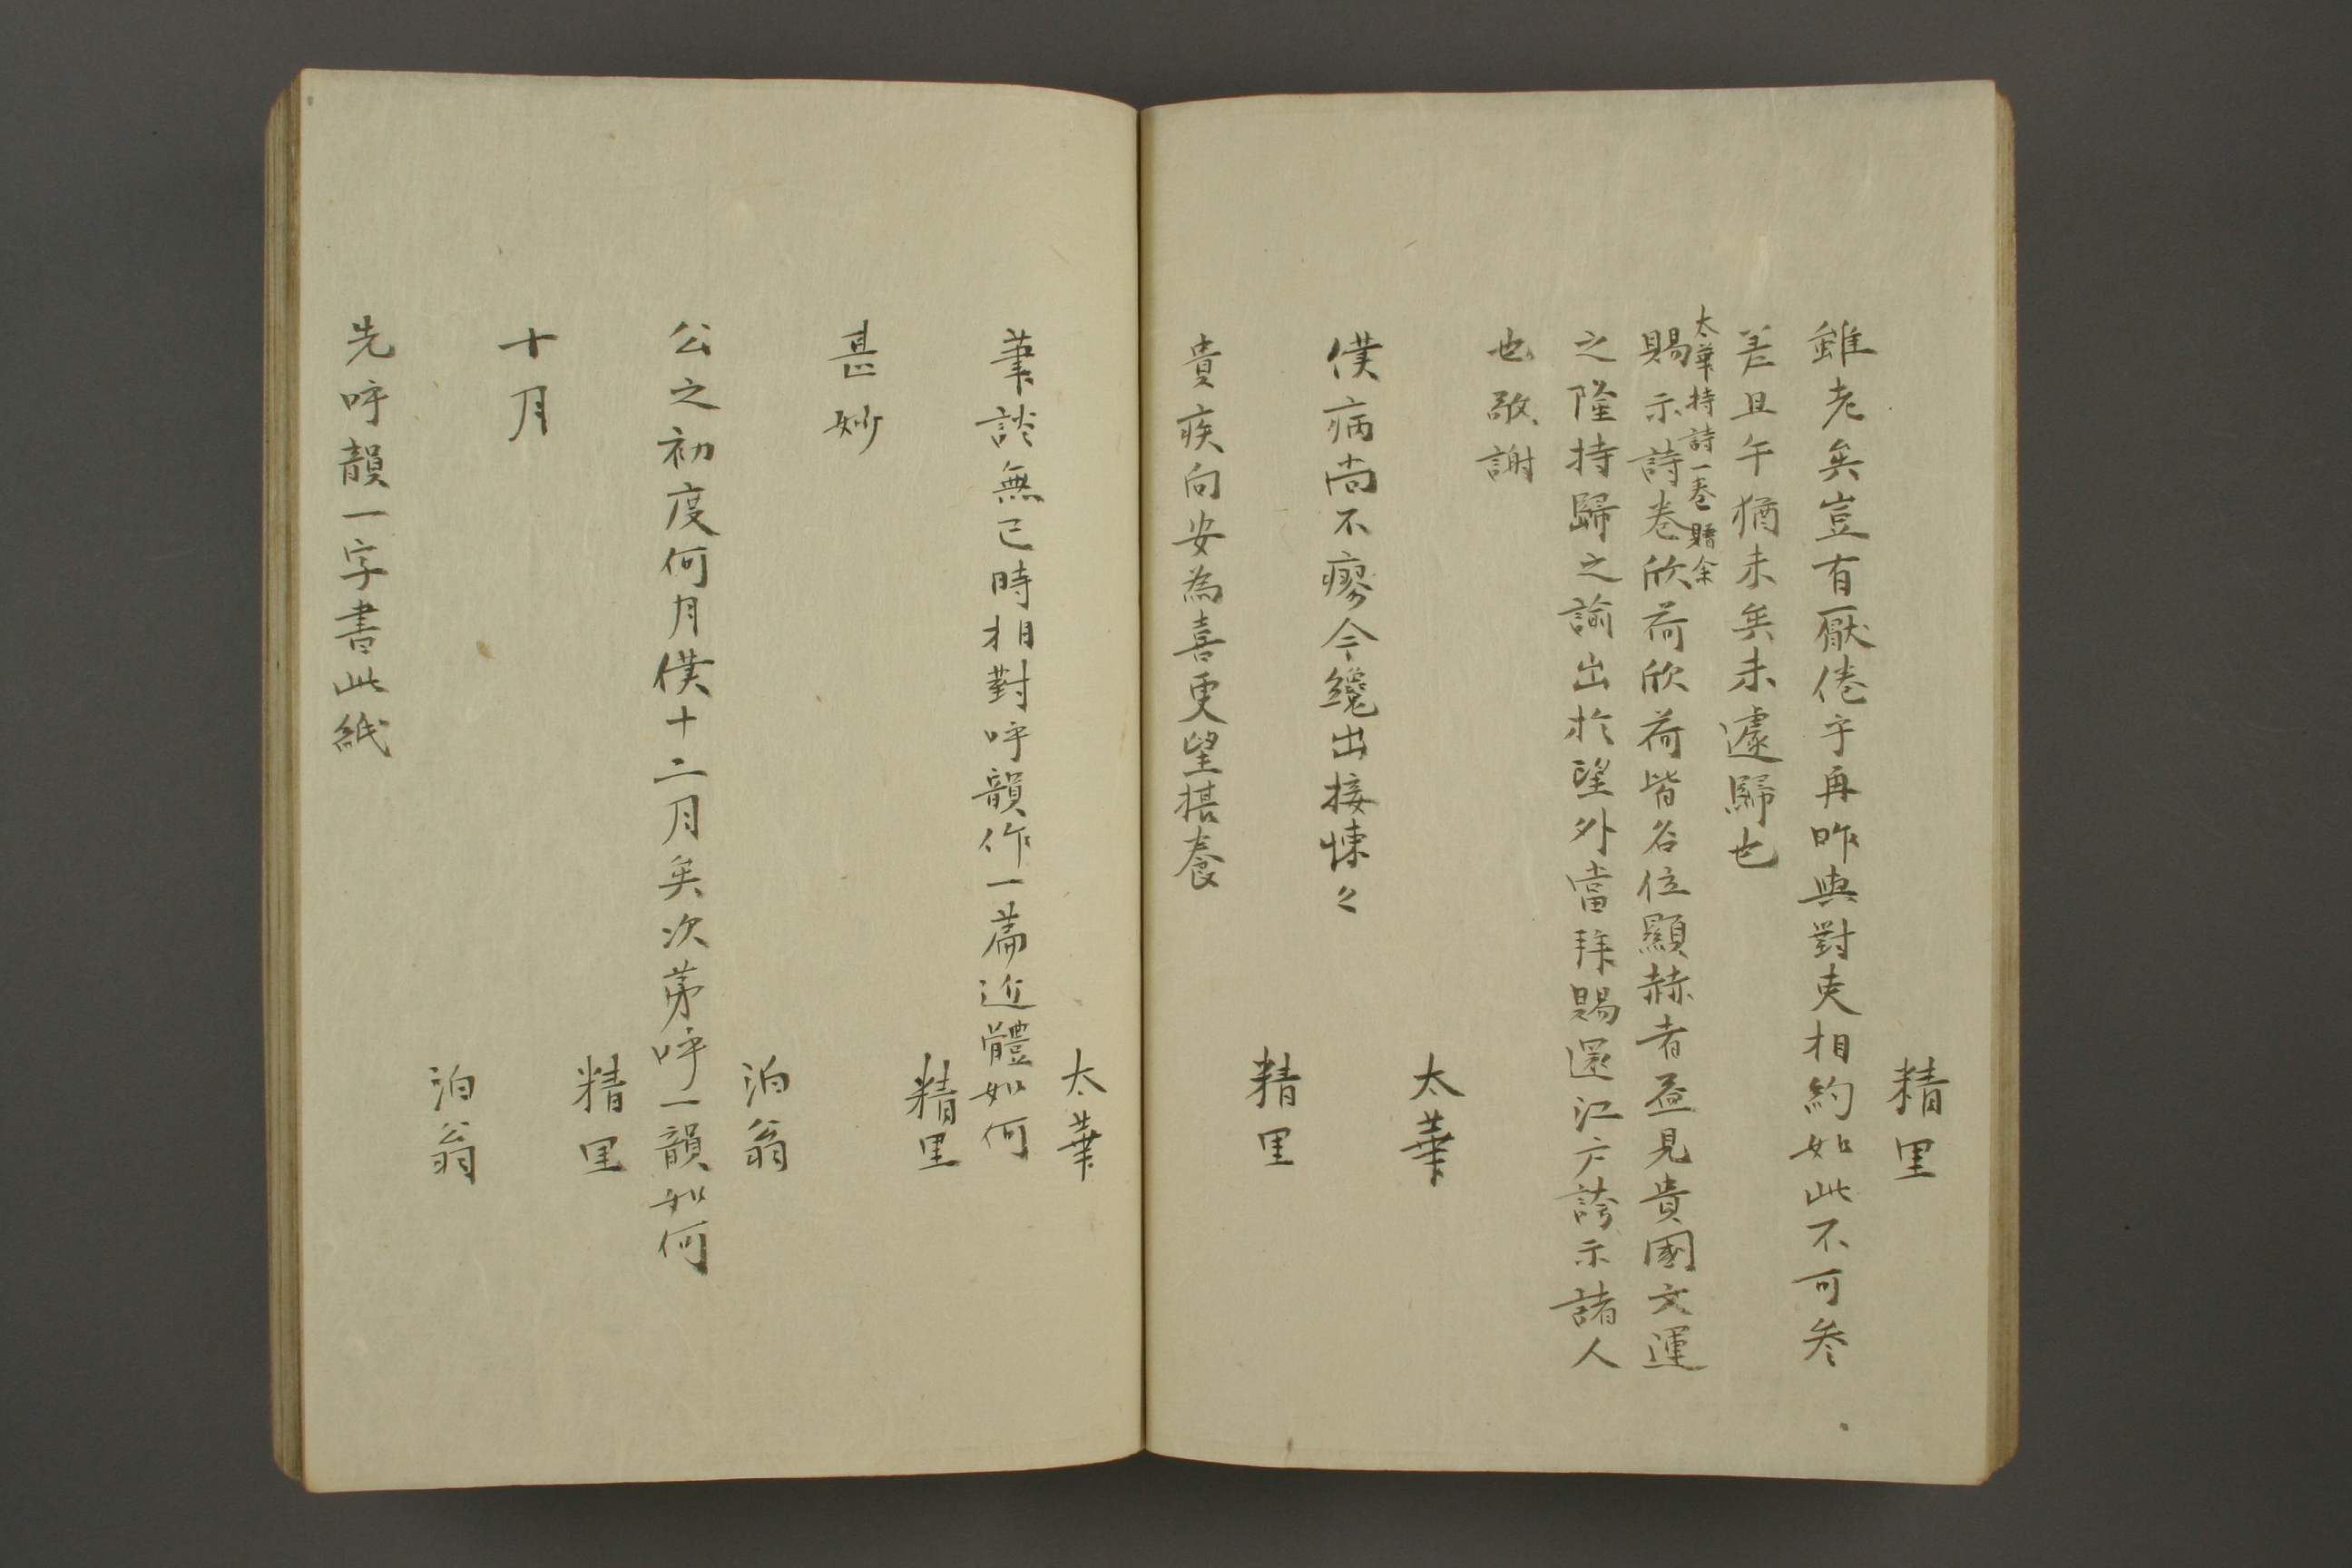 精里
雖老矣豈有厭倦乎再昨與對吏相約如此不可參
差且午猶未矣未遽歸也
太華持詩一卷贈余
賜示詩卷欣荷欣荷皆名位顯赫者益見貴國文運
之隆持歸之諭出於望外當拜賜還江戶誇示諸人
也敬謝
太華
僕病尚不瘳今纔出接悚々
精里
貴疾向安為喜更望攝養
太華
筆談無已時相對呼韻作一篇近體如何
精里
甚妙
泊翁
公之初度何月僕十二月矣次第呼一韻如何
精里
十月
泊翁
先呼韻一字書此紙